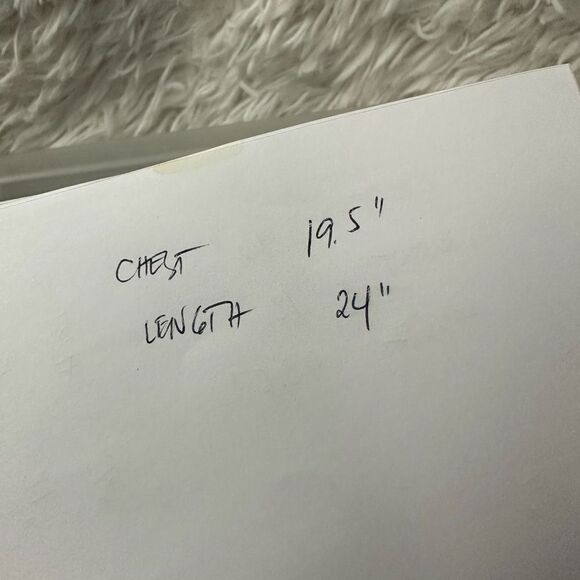 CHEST 19.5"
LENGTH 24"